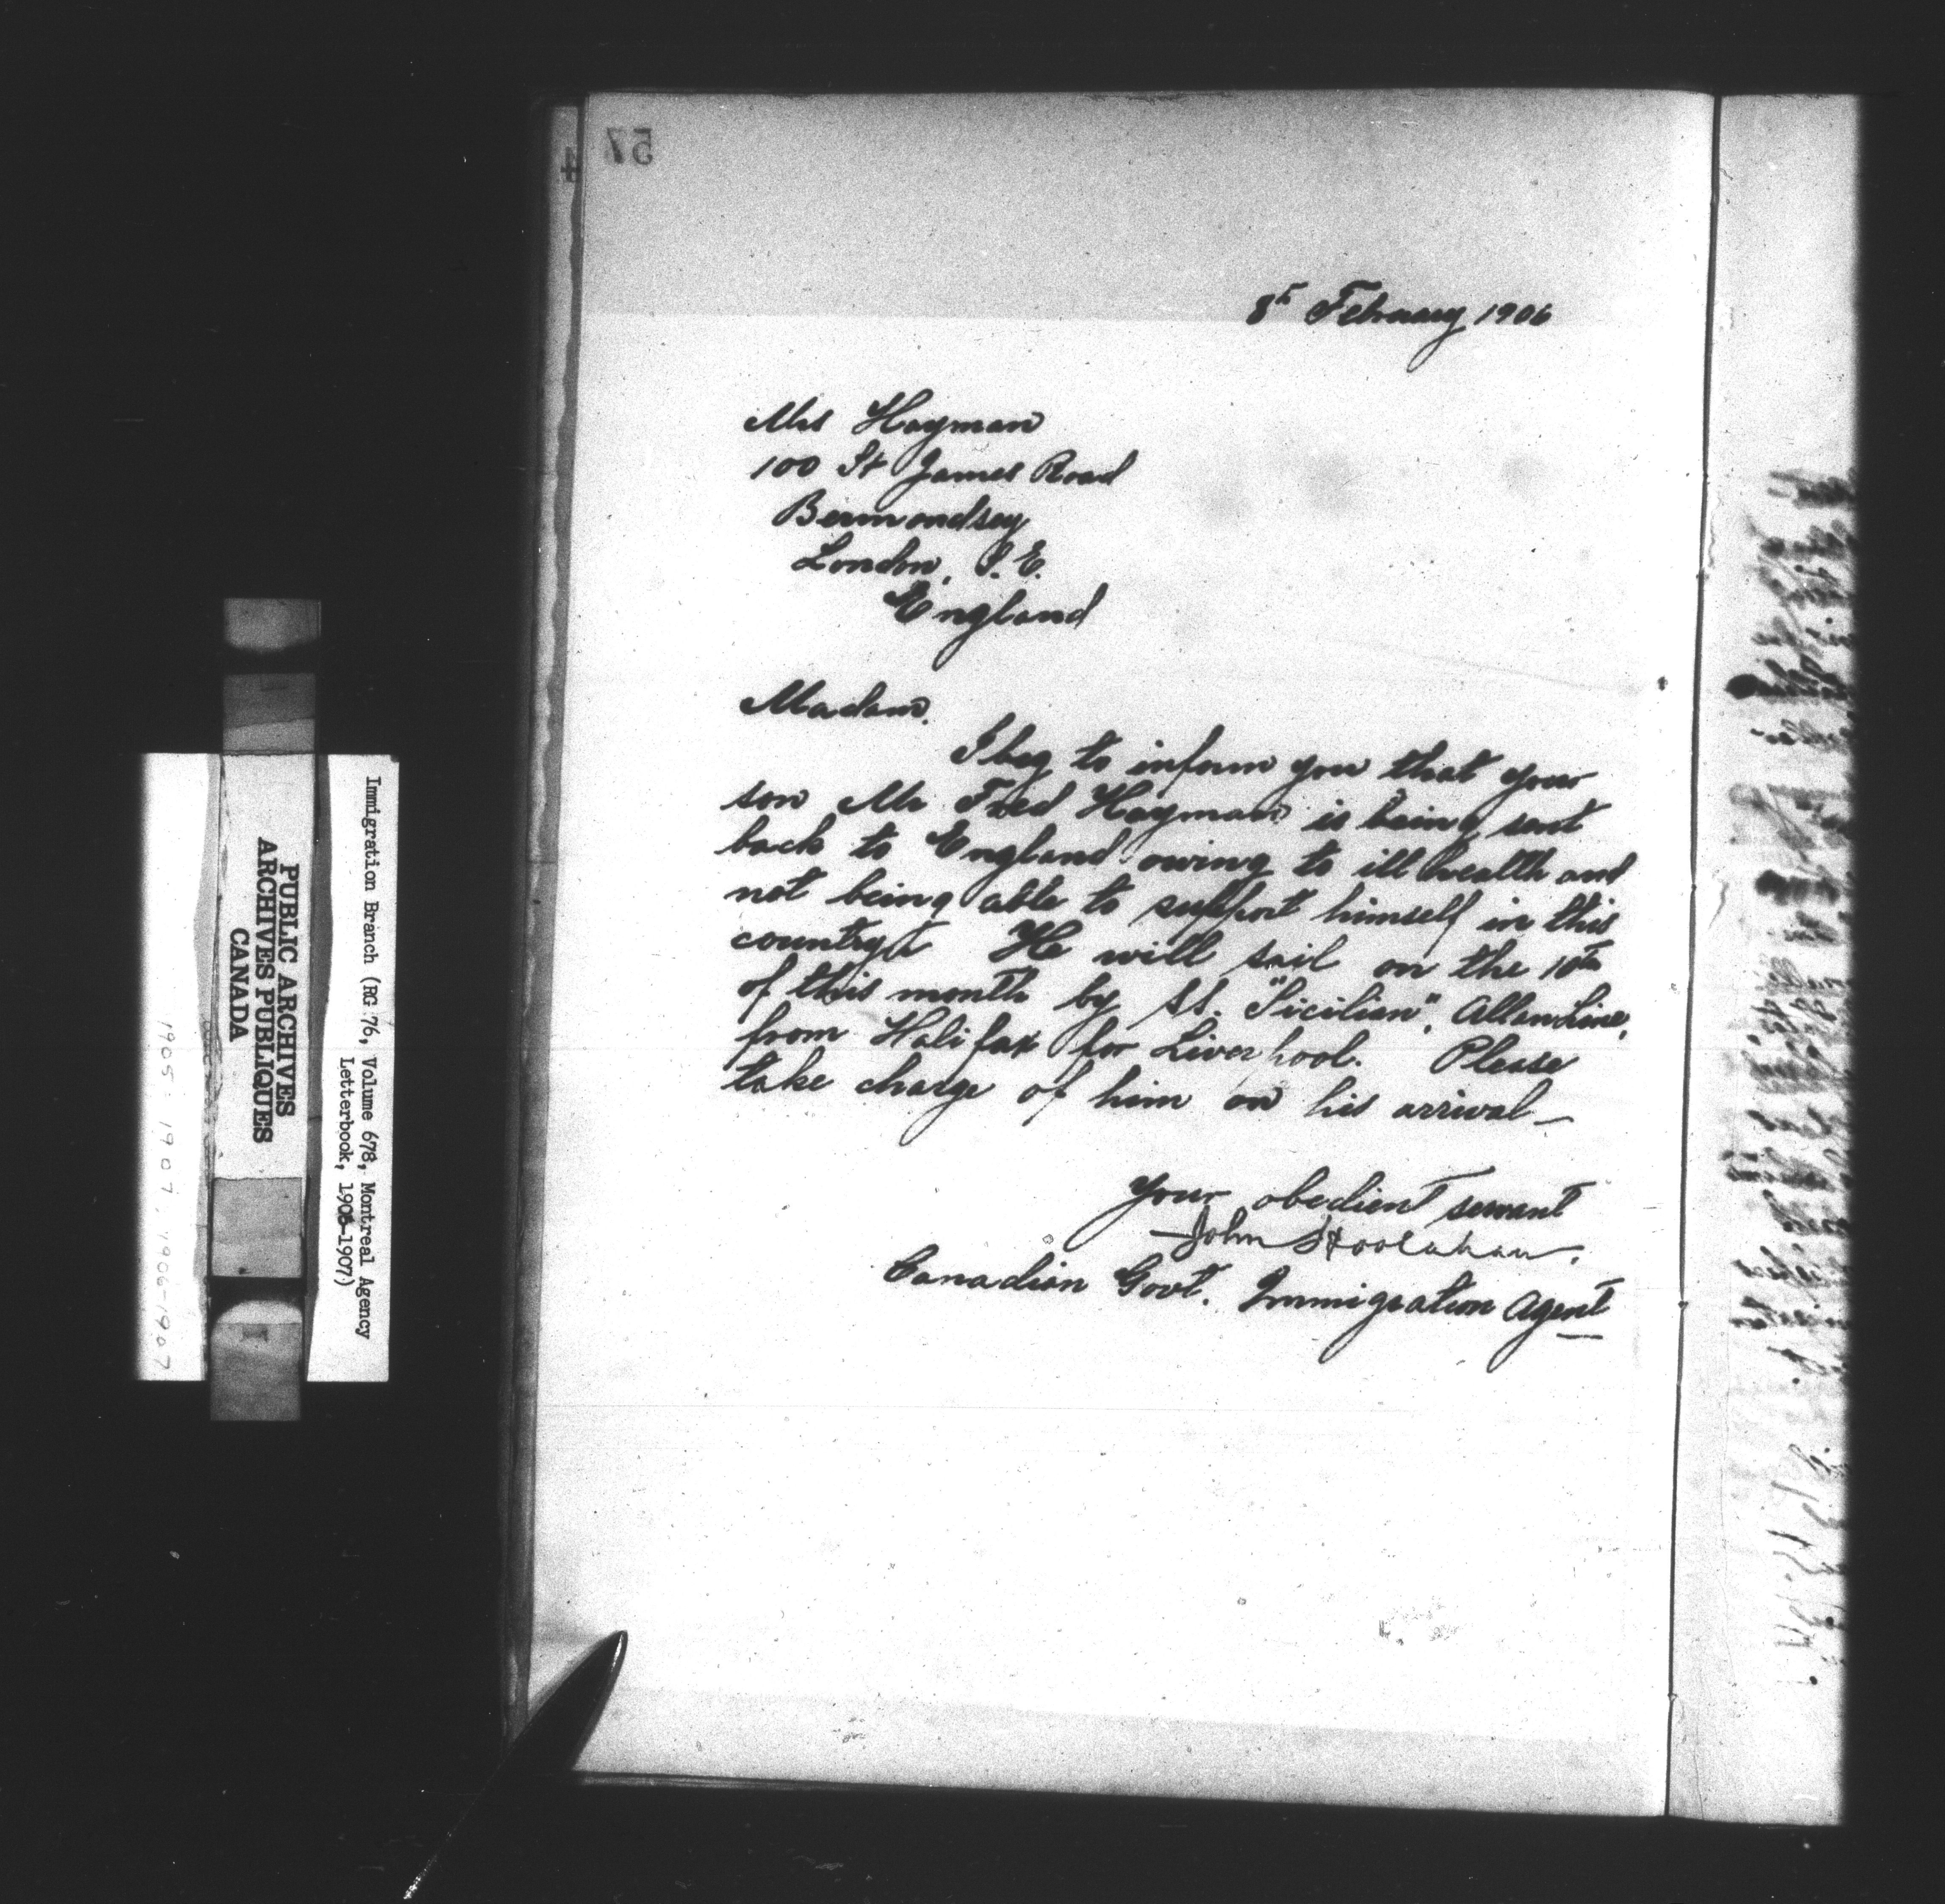 57
4
8th February 1906
Mrs Hayman
100 St James Road
Bermondsey
London, S.E.
England
Madam,
I beg to inform you that your
son Mr Fred Hayman is being sent
back to England owing to ill health and
not being able to support himself in this
country. He will sail on the 10th
of this month by SS. "Sicilian", Allan Line,
from Halifax for Liverpool. Please
take charge of him on his arrival—
Your obedient servant
John Hoolahan.
Canadian Govt. Immigration Agent
Immigration Branch (RG 76, Volume 678, Montreal Agency
Letterbook, 1905-1907)
PUBLIC ARCHIVES
ARCHIVES PUBLIQUES
CANADA
1905-1907, 1906-1907